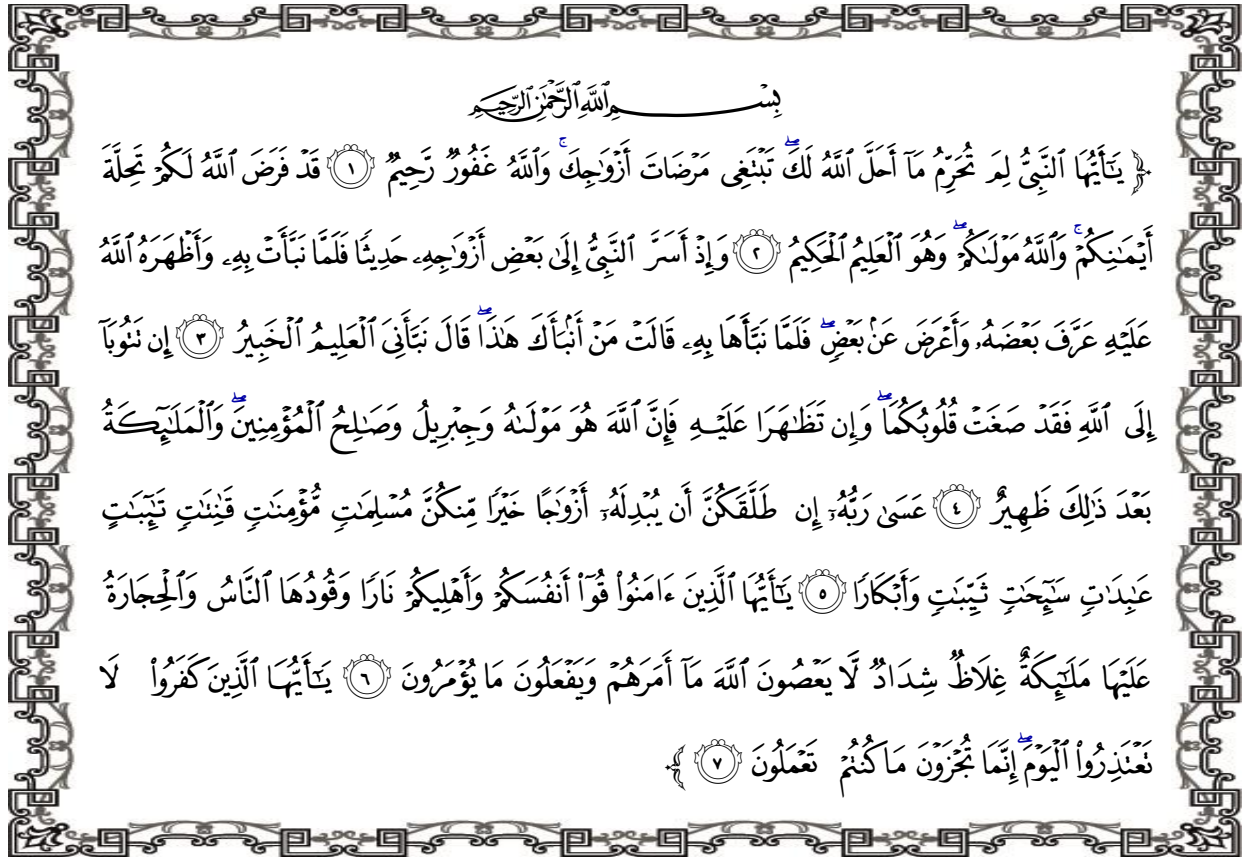 بِسْمِ ٱللَّهِ ٱلرَّحْمَٰنِ ٱلرَّحِيمِ
﴿ يَـٰٓأَيُّهَا ٱلنَّبِىُّ لِمَ تُحَرِّمُ مَآ أَحَلَّ ٱللَّهُ لَكَ ۖ تَبْتَغِى مَرْضَاتَ أَزْوَٰجِكَ ۚ وَٱللَّهُ غَفُورٌ رَّحِيمٌ ١ قَدْ فَرَضَ ٱللَّهُ لَكُمْ تَحِلَّةَ
أَيْمَـٰنِكُمْ ۚ وَٱللَّهُ مَوْلَىٰكُمْ ۖ وَهُوَ ٱلْعَلِيمُ ٱلْحَكِيمُ ٢ وَإِذْ أَسَرَّ ٱلنَّبِىُّ إِلَىٰ بَعْضِ أَزْوَٰجِهِۦ حَدِيثًا فَلَمَّا نَبَّأَتْ بِهِۦ وَأَظْهَرَهُ ٱللَّهُ
عَلَيْهِ عَرَّفَ بَعْضَهُۥ وَأَعْرَضَ عَنۢ بَعْضٍ ۖ فَلَمَّا نَبَّأَهَا بِهِۦ قَالَتْ مَنْ أَنۢبَأَكَ هَـٰذَا ۖ قَالَ نَبَّأَنِىَ ٱلْعَلِيمُ ٱلْخَبِيرُ ٣ إِن تَتُوبَآ
إِلَى ٱللَّهِ فَقَدْ صَغَتْ قُلُوبُكُمَا ۖ وَإِن تَظَـٰهَرَا عَلَيْهِ فَإِنَّ ٱللَّهَ هُوَ مَوْلَىٰهُ وَجِبْرِيلُ وَصَـٰلِحُ ٱلْمُؤْمِنِينَ ۖ وَٱلْمَلَـٰٓئِكَةُ
بَعْدَ ذَٰلِكَ ظَهِيرٌ ٤ عَسَىٰ رَبُّهُۥٓ إِن طَلَّقَكُنَّ أَن يُبْدِلَهُۥٓ أَزْوَٰجًا خَيْرًا مِّنكُنَّ مُسْلِمَـٰتٍ مُّؤْمِنَـٰتٍ قَـٰنِتَـٰتٍ تَـٰٓئِبَـٰتٍ
عَـٰبِدَٰتٍ سَـٰٓئِحَـٰتٍ ثَيِّبَـٰتٍ وَأَبْكَارًا ٥ يَـٰٓأَيُّهَا ٱلَّذِينَ ءَامَنُوا۟ قُوٓا۟ أَنفُسَكُمْ وَأَهْلِيكُمْ نَارًا وَقُودُهَا ٱلنَّاسُ وَٱلْحِجَارَةُ
عَلَيْهَا مَلَـٰٓئِكَةٌ غِلَاظٌ شِدَادٌ لَّا يَعْصُونَ ٱللَّهَ مَآ أَمَرَهُمْ وَيَفْعَلُونَ مَا يُؤْمَرُونَ ٦ يَـٰٓأَيُّهَا ٱلَّذِينَ كَفَرُوا۟ لَا
تَعْتَذِرُوا۟ ٱلْيَوْمَ ۖ إِنَّمَا تُجْزَوْنَ مَا كُنتُمْ تَعْمَلُونَ ٧ ﴾